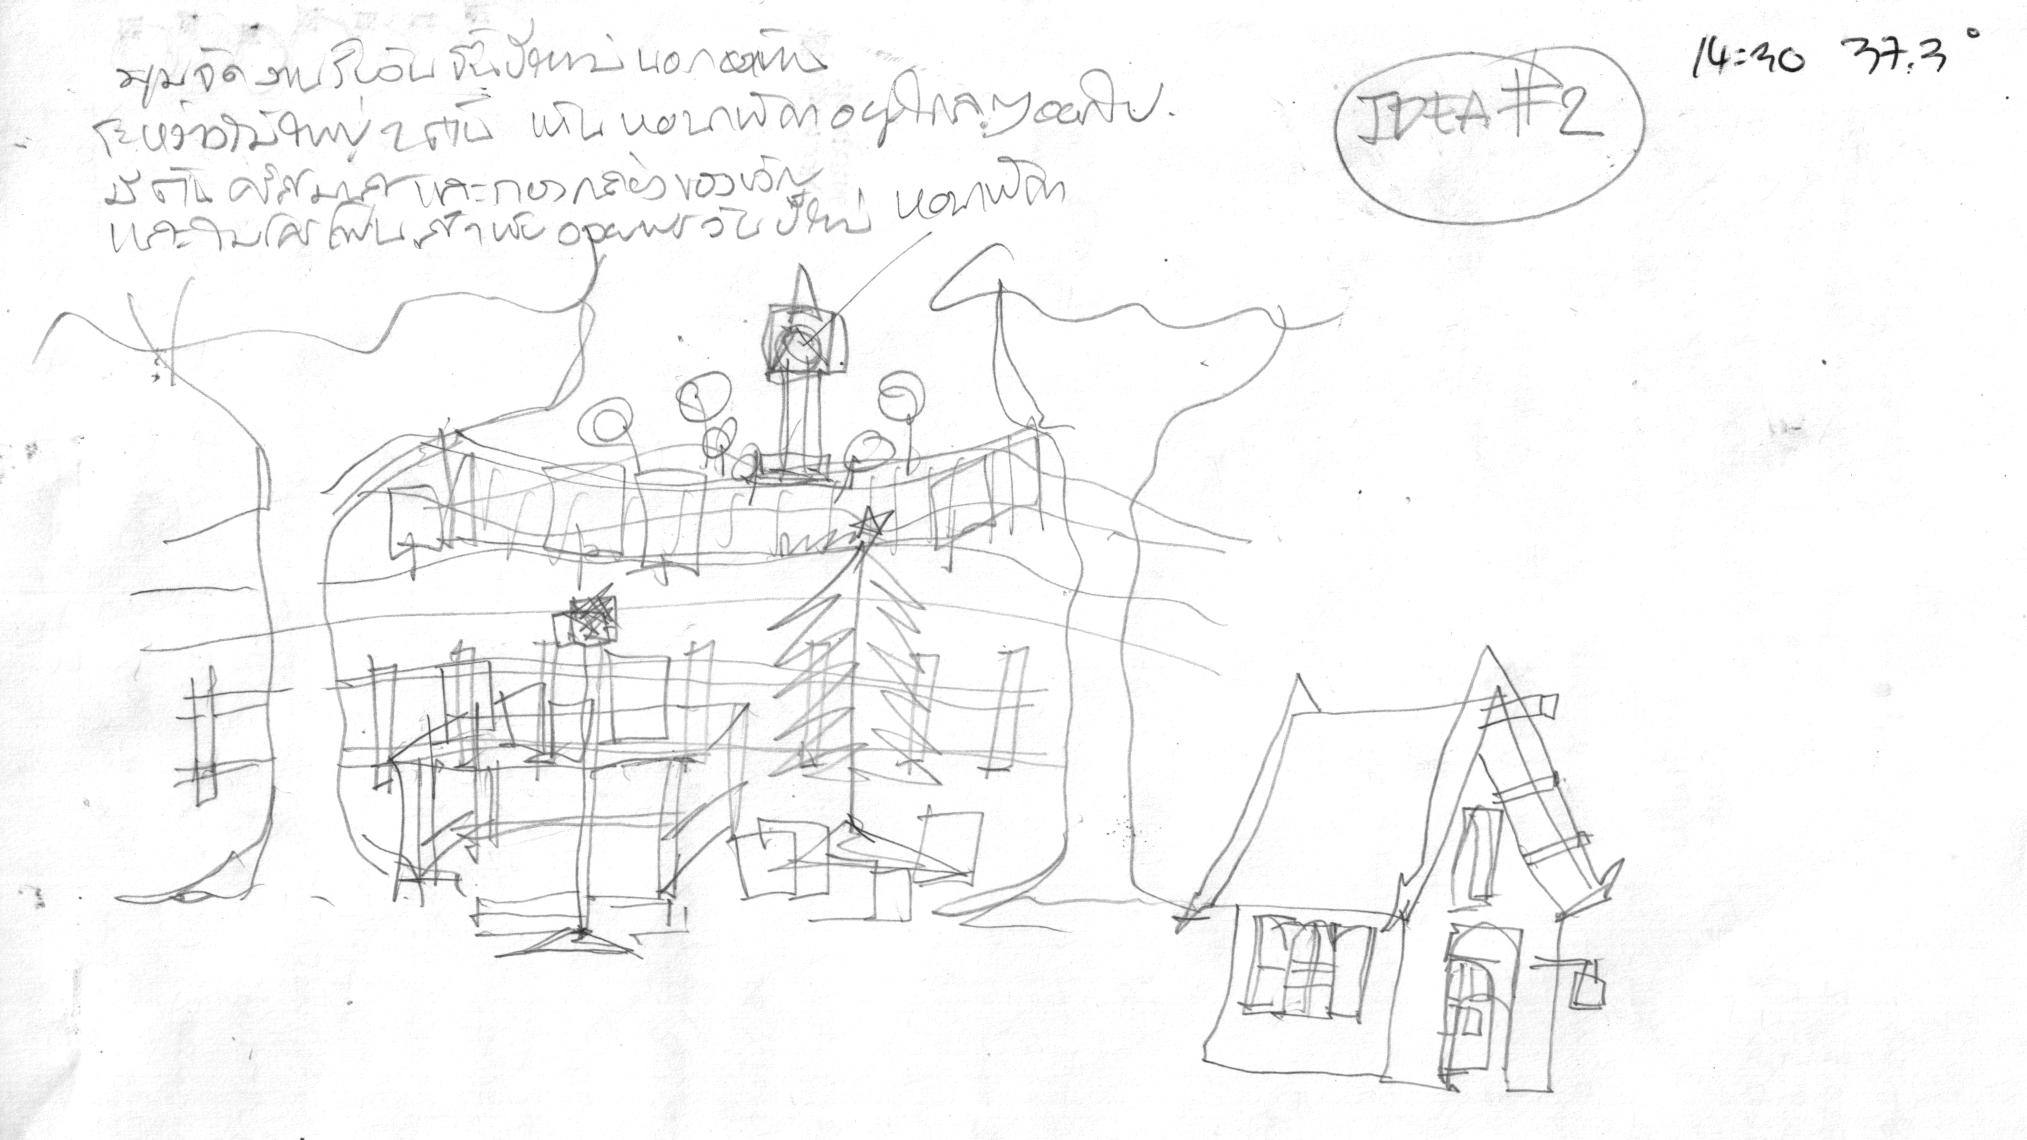 มุมจัดงานรับวันขึ้นปีใหม่นอกออฟฟิศ
ระหว่างไม้ใหญ่ 2 ต้น เห็นหอนาฬิกาอยู่ไกลๆออกไป.
มีต้นคริสมาสและกองกล่องของขวัญ
และไมโครโฟนสำหรับอวยพรวันปีใหม่
หอนาฬิกา
IDEA #2
14:30 37.3°